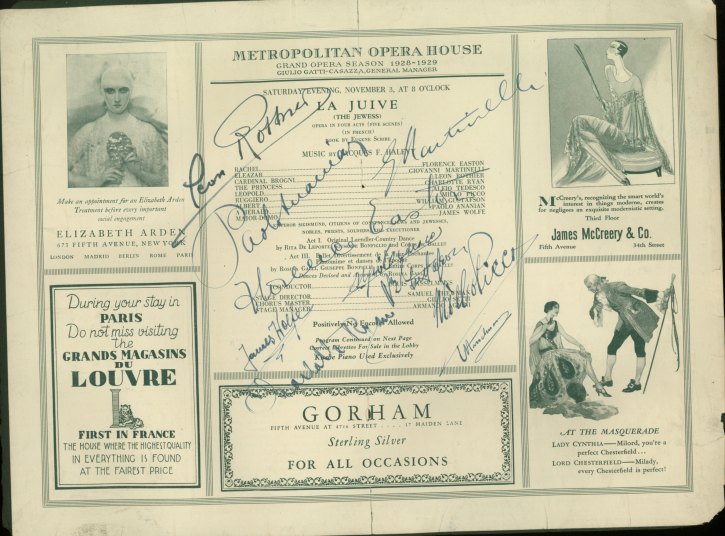 Make an appointment for an Elizabeth Arden
Treatment before every important
social engagement
ELIZABETH ARDEN
673 FIFTH AVENUE, NEW YORK
LONDON MADRID BERLIN ROME PARIS
During your stay in
PARIS
Do not miss visiting
the
GRANDS MAGASINS
DU
LOUVRE
FIRST IN FRANCE
THE HOUSE WHERE THE HIGHEST QUALITY
IN EVERYTHING IS FOUND
AT THE FAIREST PRICE
METROPOLITAN OPERA HOUSE
GRAND OPERA SEASON 1928-1929
GIULIO GATTI-CASAZZA, GENERAL MANAGER
SATURDAY EVENING, NOVEMBER 3, AT 8 O'CLOCK
LA JUIVE
(THE JEWESS)
OPERA IN FOUR ACTS (FIVE SCENES)
(IN FRENCH)
BOOK BY EUGENE SCRIBE
MUSIC BY JACQUES F. HALEVY
RACHEL FLORENCE EASTON
ELEAZAR GIOVANNI MARTINELLI
CARDINAL BROGNI LEON ROTHIER
THE PRINCESS CHARLOTTE RYAN
LEOPOLD ALFIO TEDESCO
RUGGIERO MILLO PICCO
ALBERT WILLIAM GUSTAFSON
A HERALD PAOLO ANANIAN
MAJOR-DOMO JAMES WOLFE
EMPEROR SIGISMUND, CITIZENS OF CONSTANCE, JEWS AND JEWESSES,
NOBLES, PRIESTS, SOLDIERS AND EXECUTIONER
Act I. Original Laendler-Country Dance
by RITA DE LEPORTE, GIUSEPPE BONFIGLIO AND CORPS DE BALLET
Act III. Ballet Divertissement
CONDUCTOR
STAGE DIRECTOR SAMUEL THEWMAN
CHORUS MASTER GIULIO SETTI
STAGE MANAGER ARMANDO
Positively No Encores Allowed
Program Continued on Next Page
Correct Librettos For Sale in the Lobby
Knabe Piano Used Exclusively
Leon Rothier
Paolo Ananian
G Martinelli
Florence Easton
James Wolfe
Charlotte Ryan
Millo Picco
GORHAM
FIFTH AVENUE AT 47TH STREET . . . . 17 MAIDEN LANE
Sterling Silver
FOR ALL OCCASIONS
McCreery's, recognizing the smart world's
interest in things moderne, creates
for negligees an exquisite modernistic setting.
Third Floor
James McCreery & Co.
Fifth Avenue 34th Street
AT THE MASQUERADE
LADY CYNTHIA—Milord, you're a
perfect Chesterfield . . .
LORD CHESTERFIELD—Milady,
every Chesterfield is perfect!